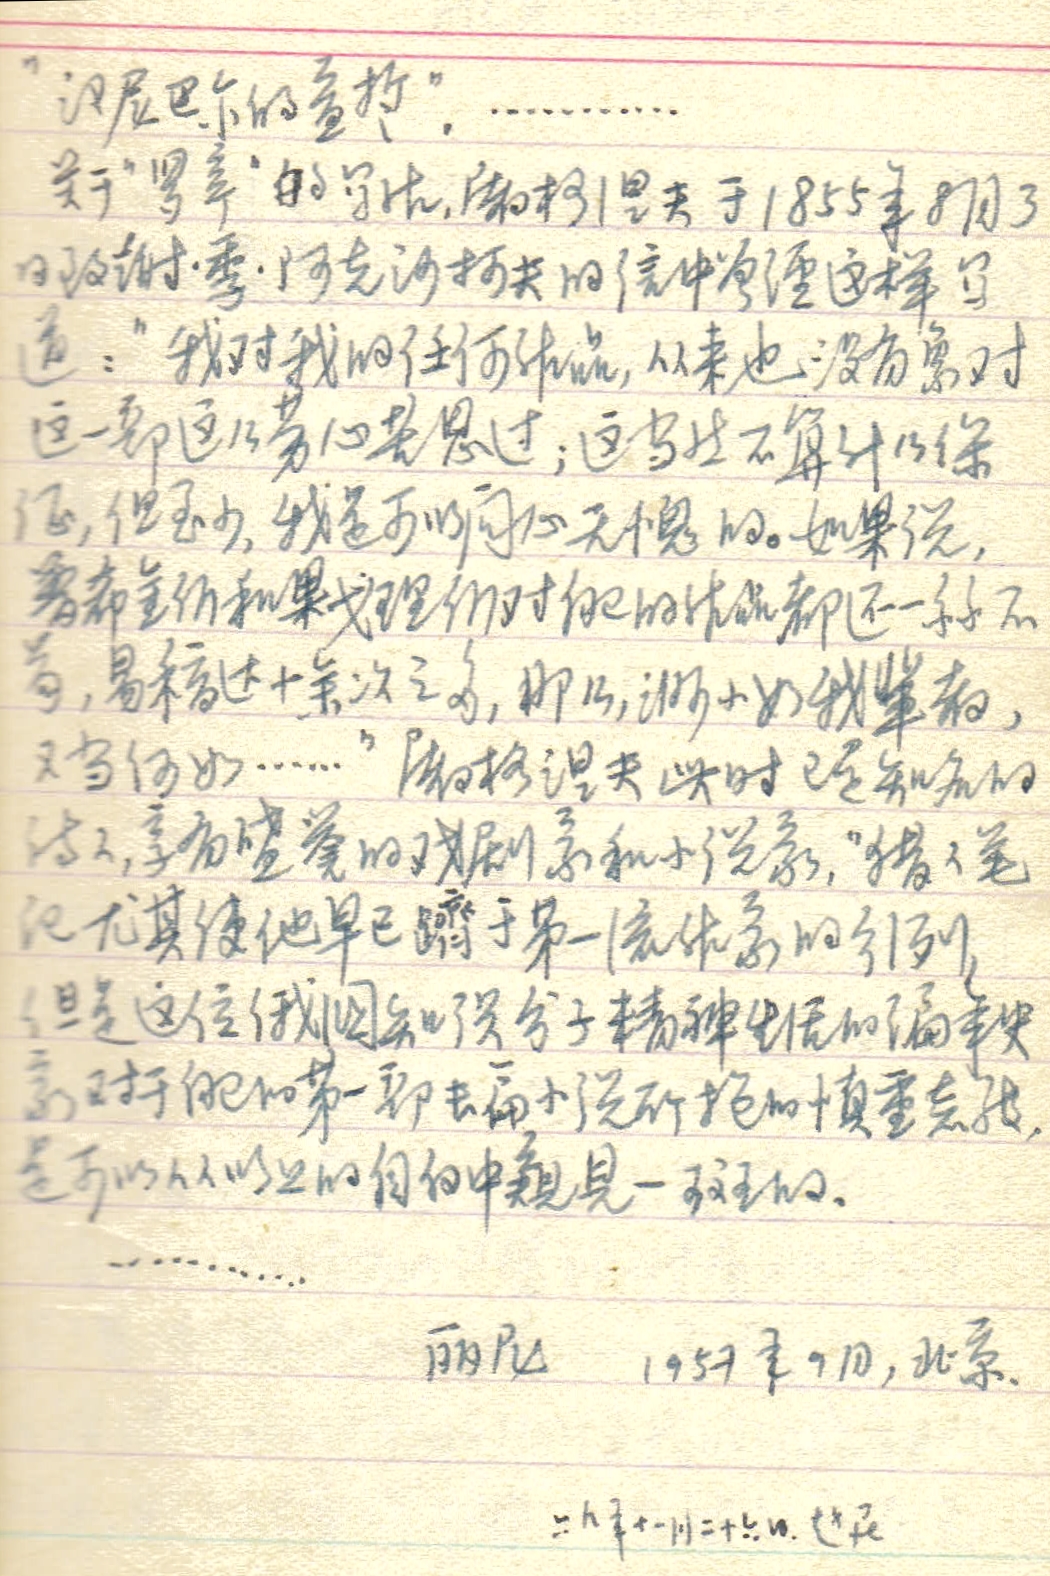 "汉尼巴尔的盟誓"。…………
关于"罗亭"的写作,屠格涅夫于1855年8月3
日致谢·季·阿克沙柯夫的信中曾经这样写
道:"我对我的任何作品,从来也没有象对
这一部这么劳心苦思过;这当然不算什么保
证,但至少,我是可以问心无愧的。如果说,
普希金们和果戈理们对自己的作品都还一丝不
苟,易稿达十余次之多,那么,渺小如我辈者,
又当何如……"屠格涅夫此时已是知名的
诗人,享有盛誉的戏剧家和小说家,"猎人笔
记尤其使他早已跻于第一流作家的行列,
但是这位俄国知识分子精神生活的编年史
家对于自己的第一部长篇小说所抱的慎重态度,
是可以从以上的自白中窥见一斑的。
…………
丽尼 1957年9月,北京.
六八年十一月二十六日.